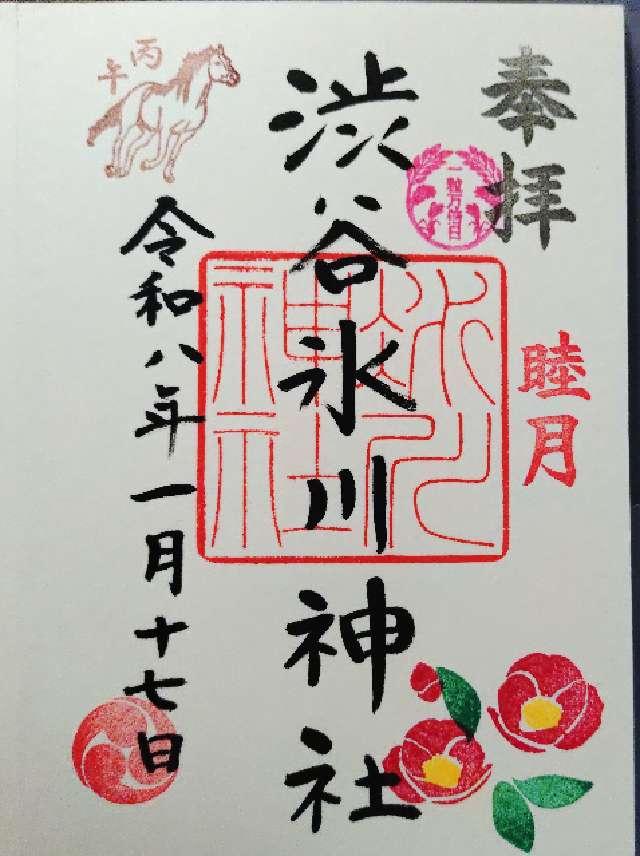 奉拝
一粒万倍日
睦月
渋谷氷川神社
令和八年一月十七日
丙午